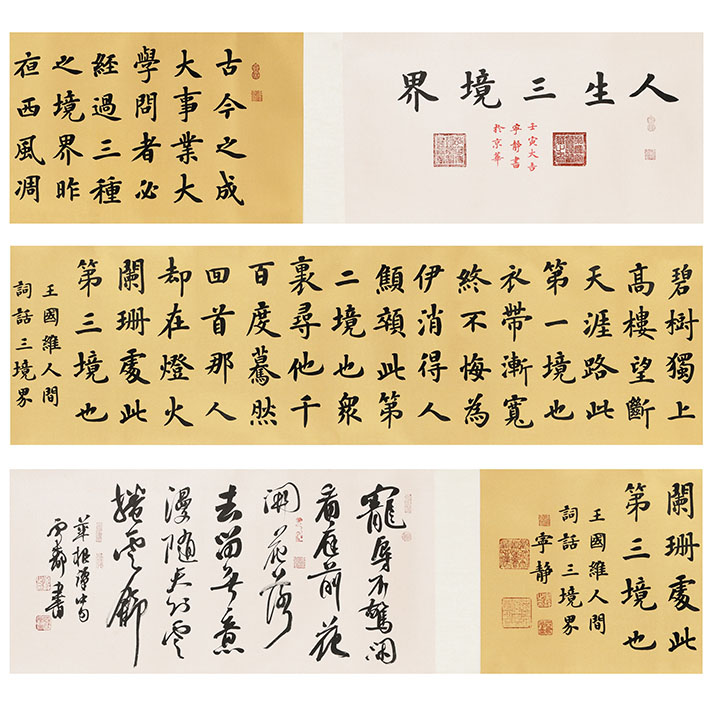 人生三境界
壬寅大吉
寧靜書
於京華
古今之成
大事業大
學問者必
經過三種
之境界昨
亱西風凋
碧樹獨上
高樓望斷
天涯路此
第一境也
衣帶漸寬
終不悔為
伊消得人
顦顇此第
二境也衆
裏尋他千
百度驀然
回首那人
却在燈火
闌珊處此
第三境也
王國維人間
詞話三境界
闌珊處此
第三境也
王國維人間
詞話三境界
寧靜
寵辱不驚閑
看庭前花
開花落
去留無意
漫随天外雲
捲雲舒